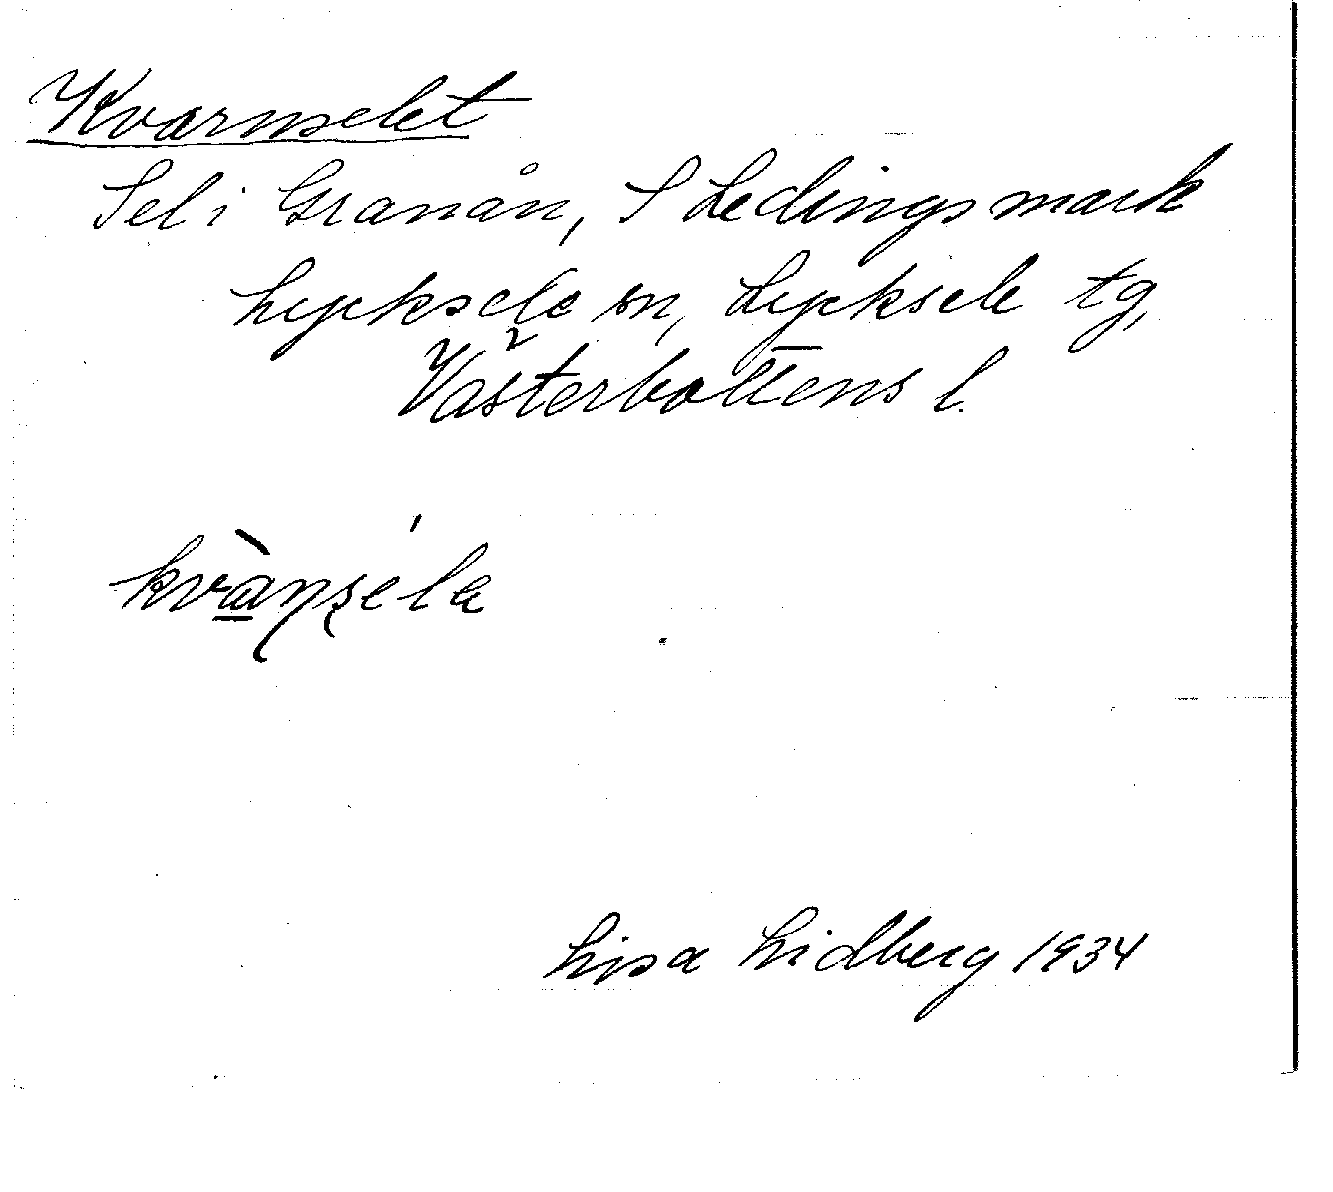 Kvarnselet
Sel i Granån, S Ledingsmark
Lycksele sn, Lycksele tg,
Västerbottens l.
Lisa Lidberg 1934